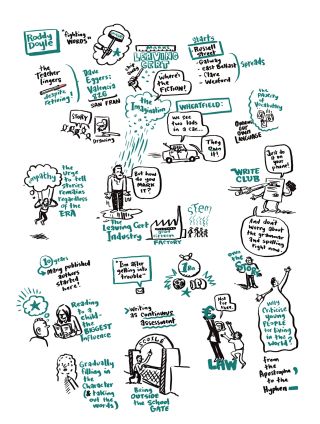 Roddy
Doyle
"fighting
WORDS"
the
Teacher
lingers
despite
Retiring!
Dave
Eggers:
Valencia
826
SAN FRAN
LEAVING
CERT
where's
the
FICTION!
starts
Russell
Street
- Galway
- East Belfast
- Clare
- Wexford
Spreads
the
Imagination
WHEATFIELD:
we see
two lads
in a car...
They
Ran
it!
the
Poverty
of
Vocabulary
OWN
LANGUAGE
STORY
Drawing
empathy
the
urge
to tell
stories
remains
regardless
of the
ERA
But how
do you
MARK
it?
The
Leaving Cert
Industry
STEM
FACTORY
Just do
it on
your
phone!
WRITE
CLUB
And don't
worry about
the grammar
and spelling
right now
10 years
many published
authors
started
here!
"I'm after
getting into
trouble"
Writing
as continuous
assessment
Reading
to a
child -
the BIGGEST
Influence
Gradually
filling in
the
Character
(& taking
out the
words)
SCOILE
Being
OUTSIDE
the School
GATE
Not
for
LAW
Why
Criticise
young
PEOPLE
for living
in the
world?
from
the
Apostrophe
to the
Hyphen